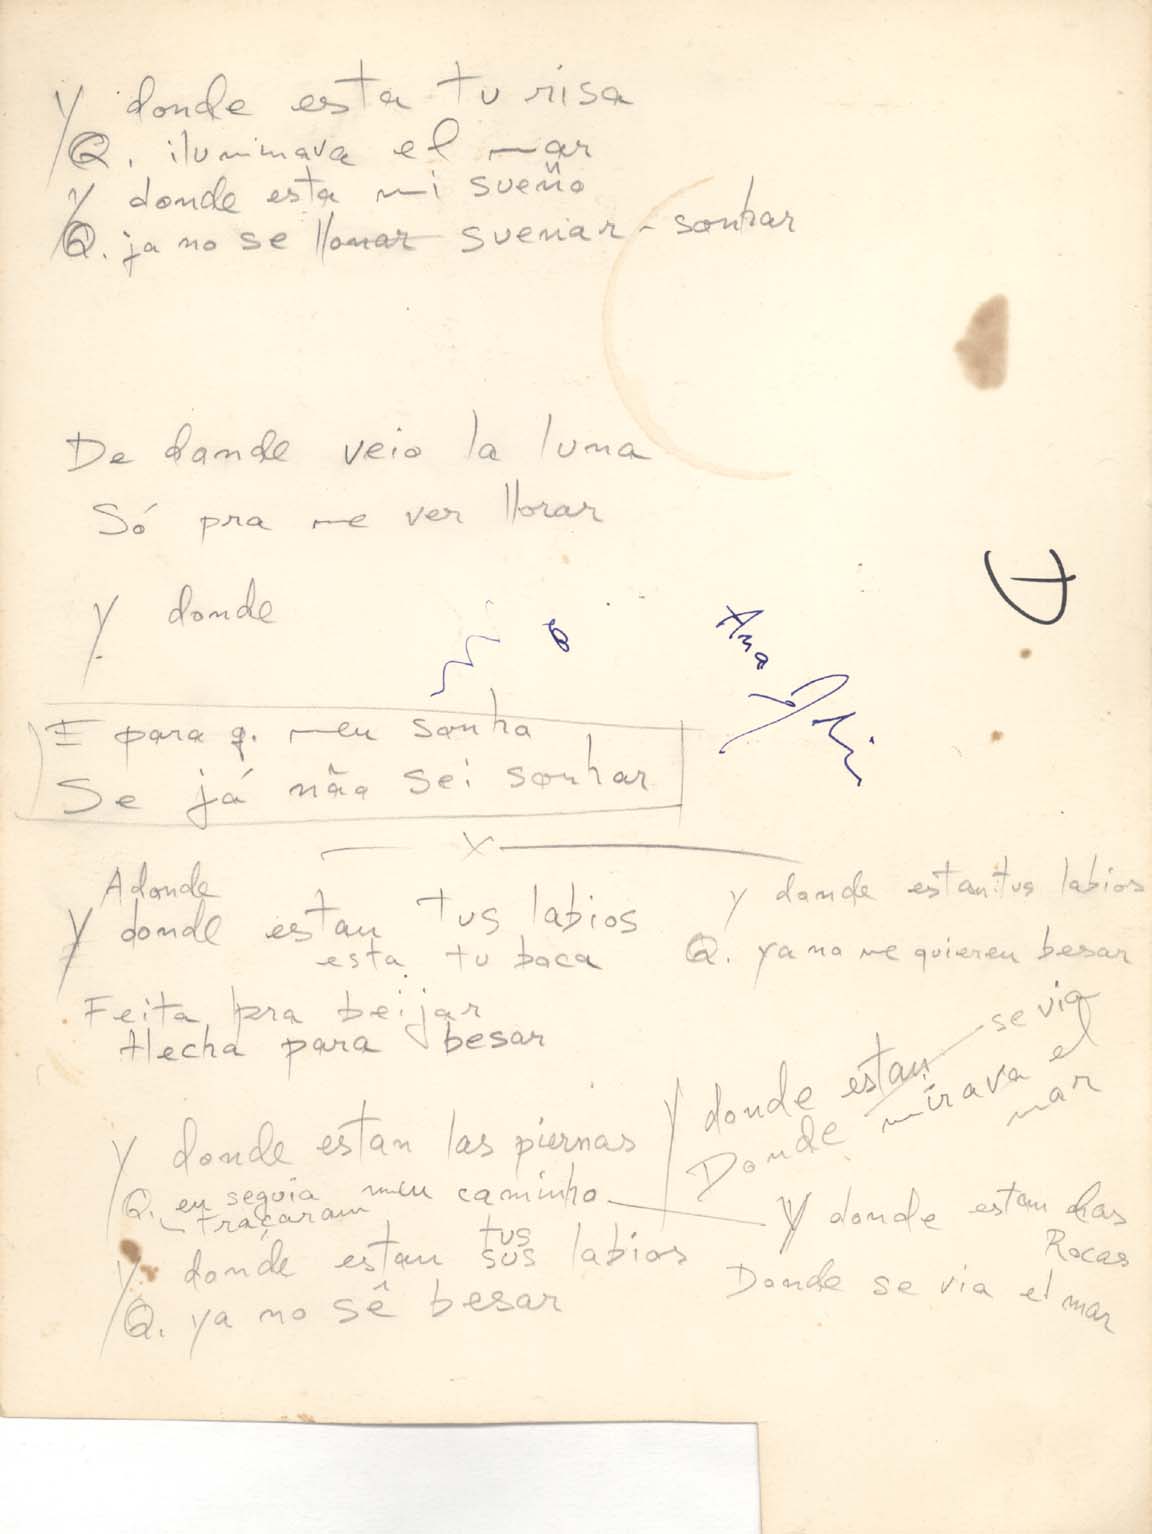 Y donde esta tu risa
Q. iluminava el mar
Y donde esta mi sueño
Q. ja no se llorar suenar - sonhar
De donde veio la luna
Só pra me ver llorar
Y donde
Ana
E para q. meu sonho
Se já não sei sonhar
x
Adonde
Y donde estan tus labios
esta tu boca
Feita pra beijar
Hecha para besar
Y donde estan tus labios
Q. ya no me quieren besar
Y donde estan se via
Donde mirava el
mar
Y donde estan las piernas
Q. eu seguia meu caminho
traçaram
Y donde estan las
Rocas
Donde se via el mar
tus
Y donde estan sus labios
Q. ya no sê besar